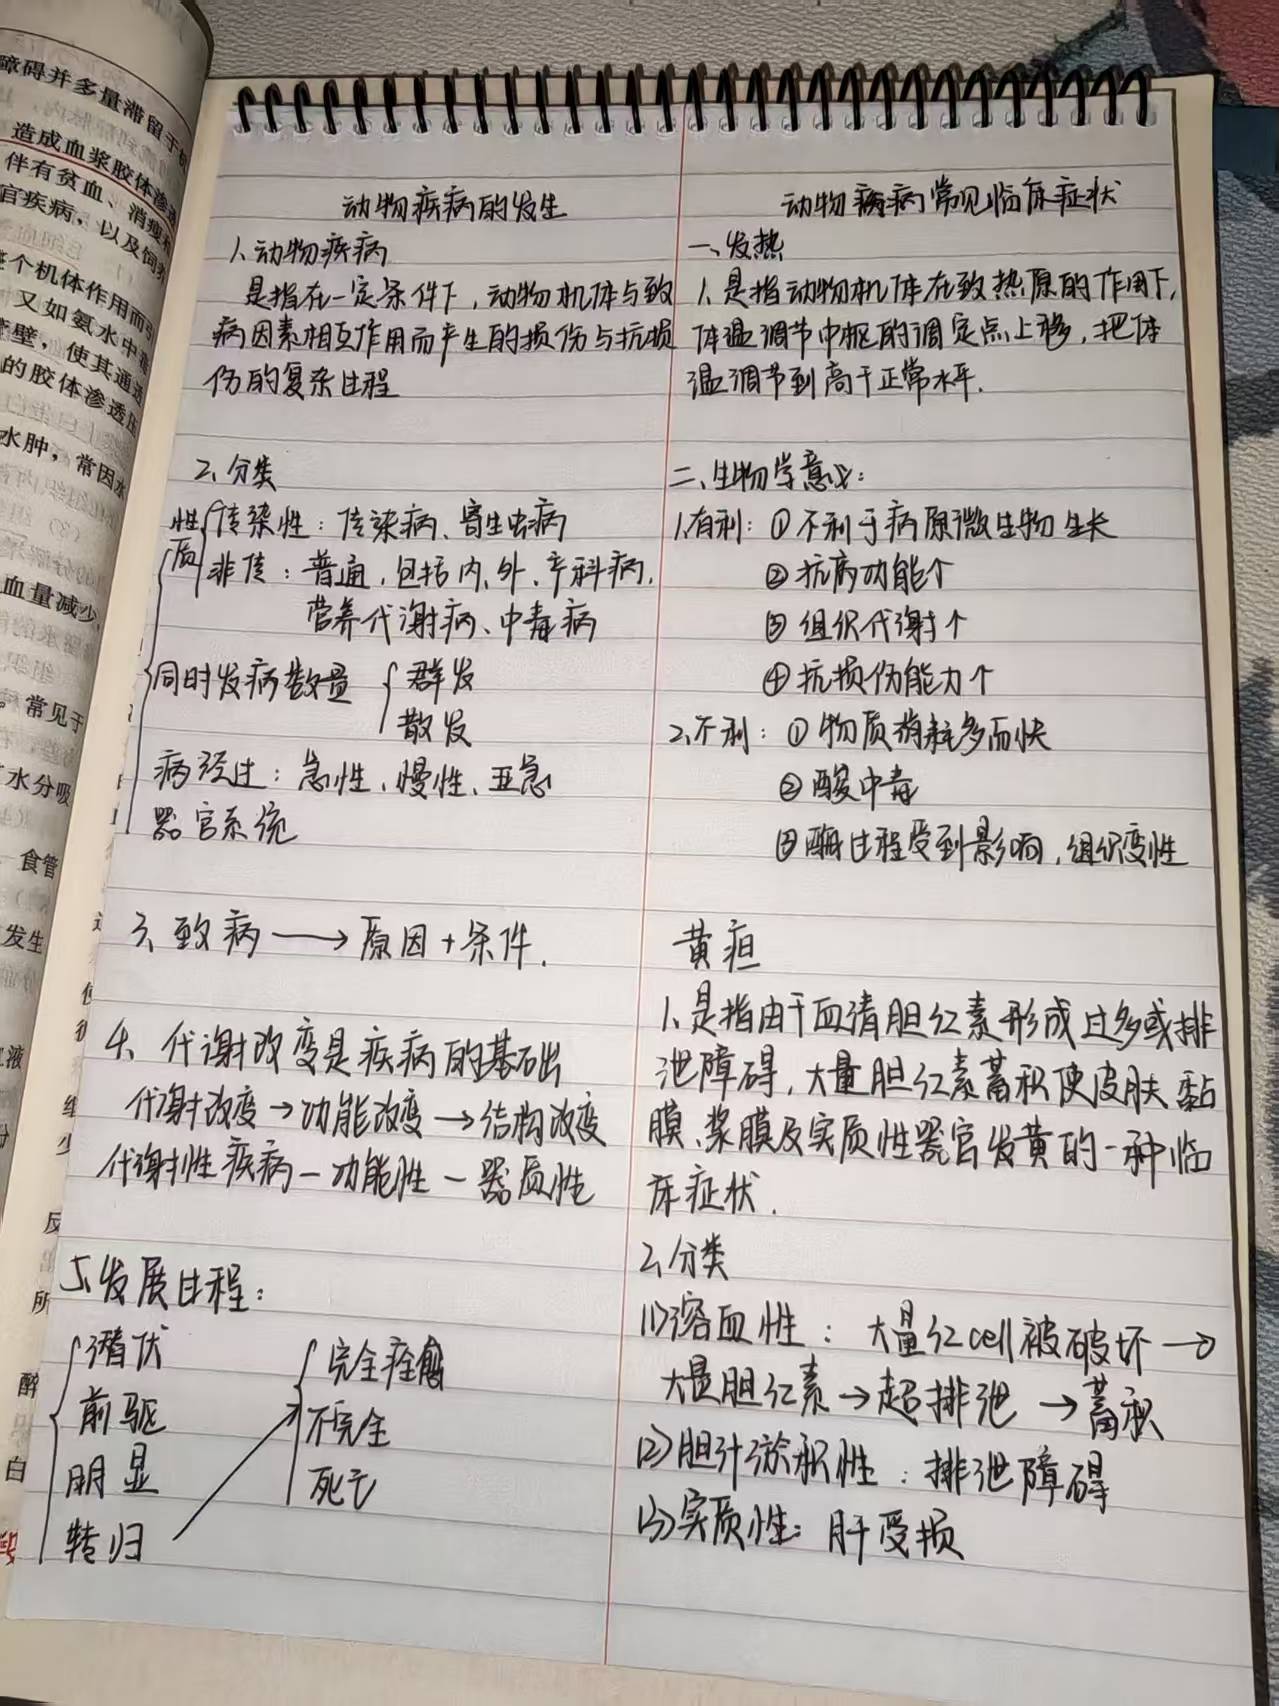 障碍并多量滞留于
造成血浆胶体渗透
伴有贫血、消瘦
官疾病，以及饲养
整个机体作用而引
又如氨水中
壁，使其通透
的胶体渗透压
水肿，常因水
血量减少
。常见于
水分吸
食管
发生
液
醉
白
动物疾病的发生
1、动物疾病
是指在一定条件下，动物机体与致
病因素相互作用而产生的损伤与抗损
伤的复杂过程
2、分类
性质
传染性：传染病、寄生虫病
非传：普通，包括内、外、产科病，
营养代谢病、中毒病
同时发病数量
群发
散发
病经过：急性、慢性、亚急
器官系统
3、致病→原因+条件.
4、代谢改变是疾病的基础
代谢改变→功能改变→结构改变
代谢性疾病—功能性—器质性
5、发展过程：
潜伏
前驱
明显
转归
完全痊愈
不完全
死亡
动物疾病常见临床症状
一、发热
1、是指动物机体在致热原的作用下，
体温调节中枢的调定点上移，把体
温调节到高于正常水平.
二、生物学意义：
1、有利：①不利于病原微生物生长
②抗病功能↑
③组织代谢↑
④抗损伤能力↑
2、不利：①物质消耗多而快
②酸中毒
③酶过程受到影响，组织变性
黄疸
1、是指由于血清胆红素形成过多或排
泄障碍，大量胆红素蓄积使皮肤、黏
膜、浆膜及实质性器官发黄的一种临
床症状.
2、分类
(1)溶血性：大量红cell被破坏→
大量胆红素→超排泄→蓄积
(2)胆汁淤积性：排泄障碍
(3)实质性：肝受损